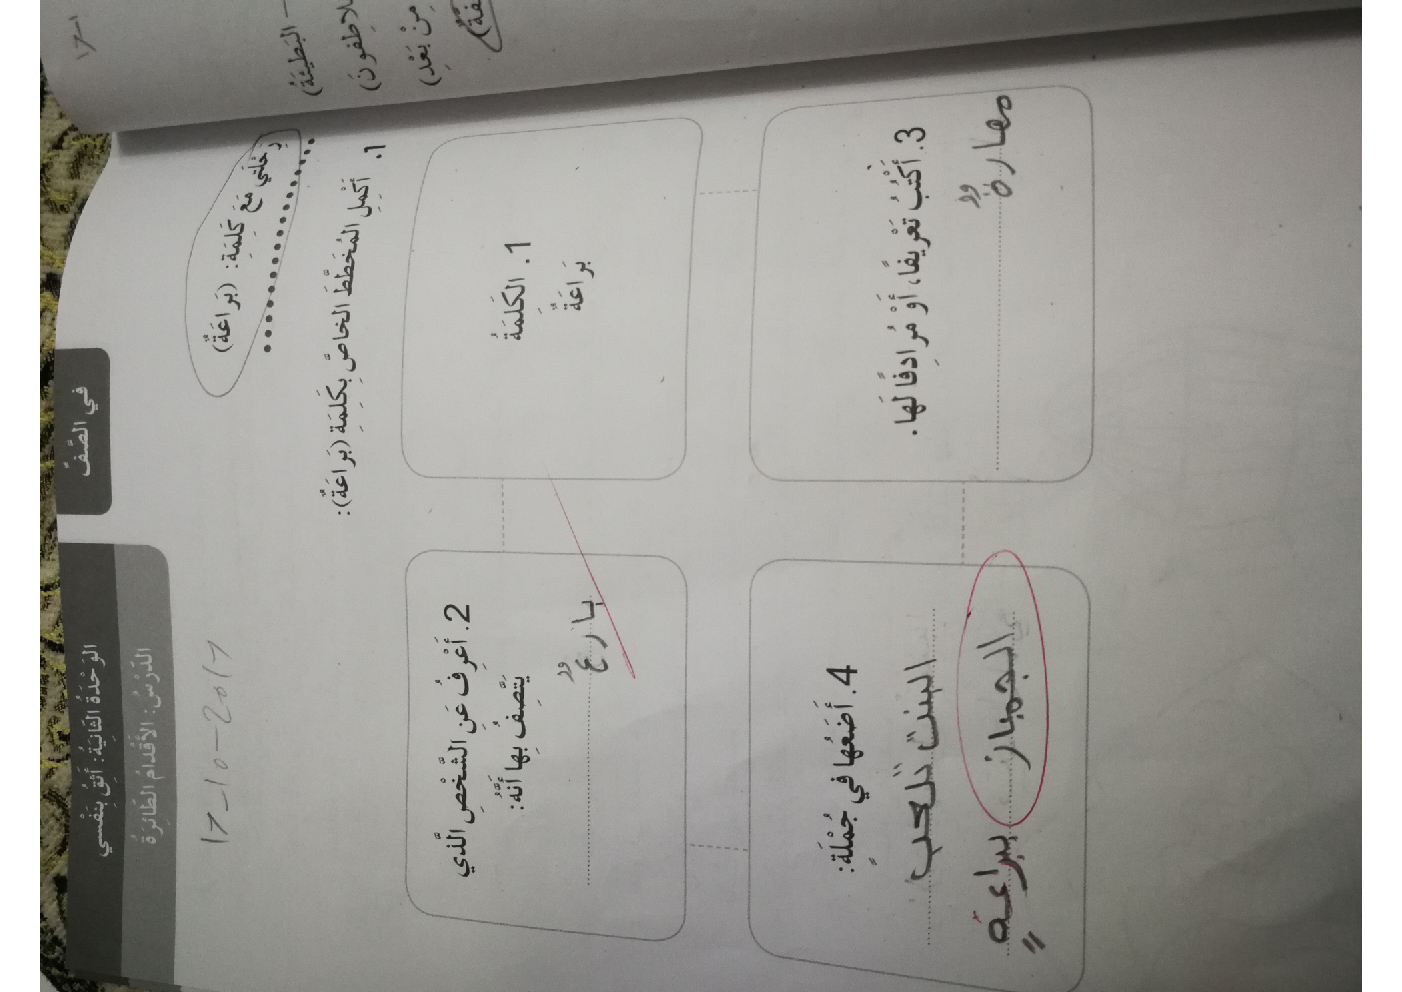 في الصَّفِّ
الوَحْدَةُ الثّانِيَةُ: أَثِقُ بِنَفْسي
الدَّرْسُ: الأَقْدامُ الطّائِرَةُ
17-10-2017
رِحْلَتي مَعَ كَلِمَةِ: (بَراعَةٌ)
1. أُكْمِلُ المُخَطَّطَ الخاصَّ بِكَلِمَةِ (بَراعَةٌ):
1. الكَلِمَةُ
بَراعَةٌ
2. أَعْرِفُ عَنِ الشَّخْصِ الَّذي
يَتَّصِفُ بِها أَنَّهُ:
بارعٌ
3. أَكْتُبُ تَعْريفًا، أَوْ مُرادِفًا لَها.
مهارةٌ
4. أَضَعُها في جُمْلَةٍ:
البنت تلعب
الجمباز ببراعةٍ
البَطيئَةُ)
مِنْ بَعْدِ)